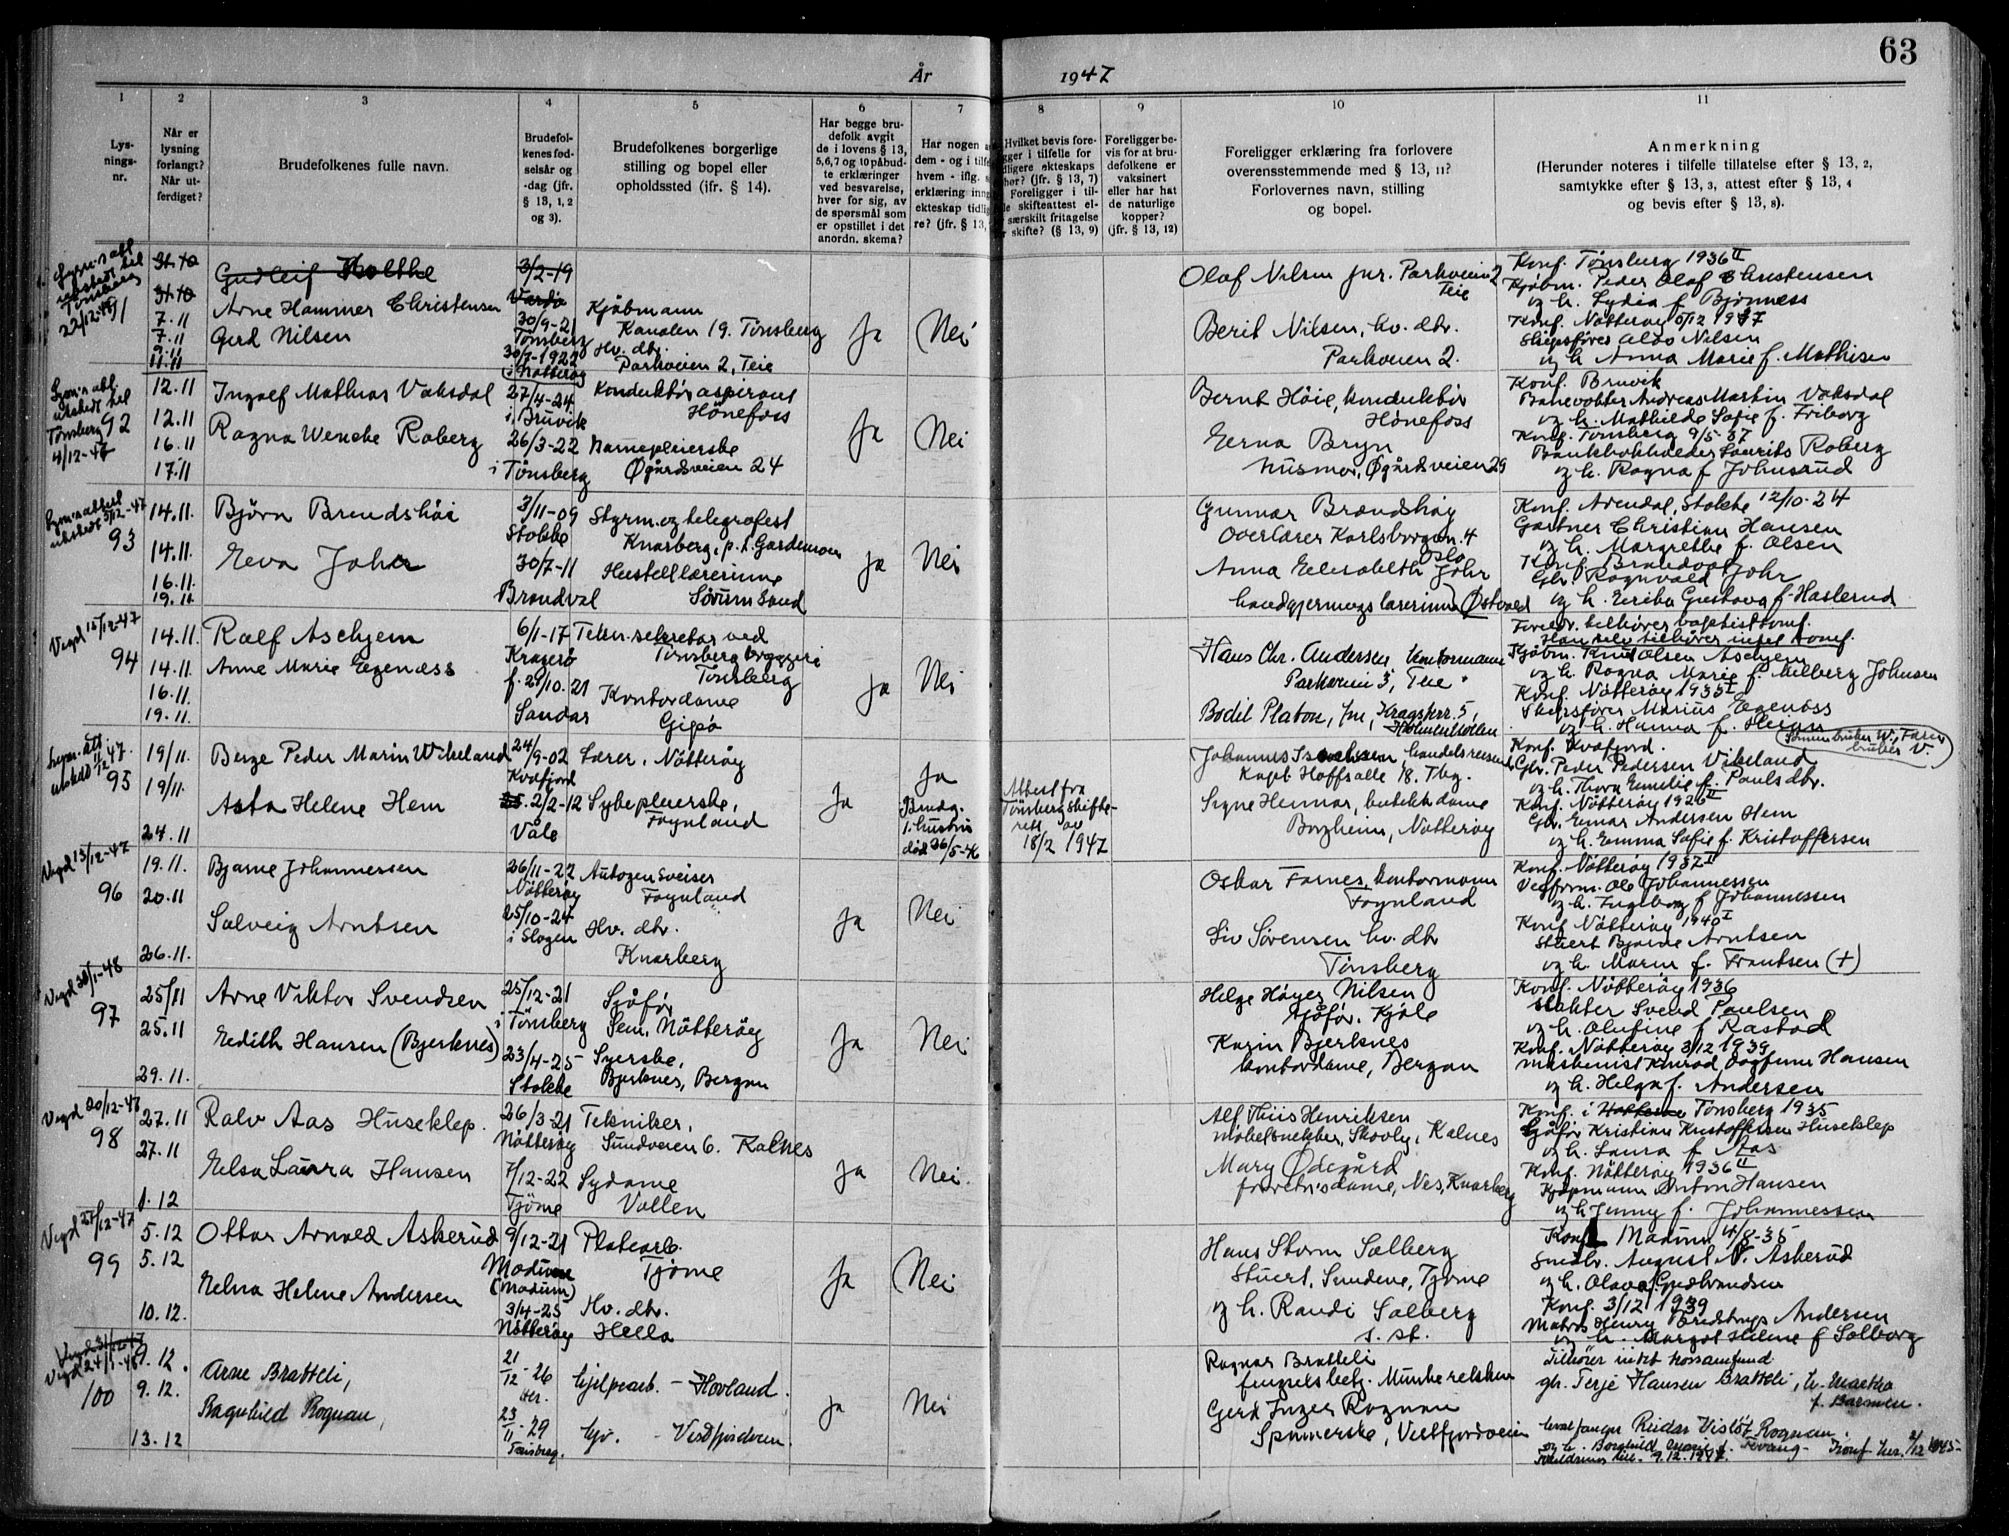 63
År 1947
1
2
3
4
5
6
7
8
9
10
11
Lys-
nings-
nr.
Når er
lysning
forlangt?
Når ut-
ferdiget?
Brudefolkenes fulle navn.
Brudefol-
kenes fød-
selsår og
-dag (jfr.
§ 13, 1, 2
og 3).
Brudefolkenes borgerlige
stilling og bopel eller
opholdssted (ifr. § 14).
Har begge bru-
defolk avgit
de i lovens § 13,
5,6,7 og 10 påbud-
te erklæringer
ved besvarelse,
hver for sig, av
de spørsmål som
er opstillet i det
anordn. skema?
Har nogen a
dem - og i tilfe
hvem - iflg.
erklæring inng
ekteskap tidlig
re? (jfr. § 13,
Hvilket bevis fore-
gger i tilfelle for
dligere ekteskaps
hør? (jfr. § 13, 7)
Foreligger i til-
le skifteattest el-
særskilt fritagelse
r skifte? (§ 13, 9)
Foreligger be-
vis for at bru-
defolkene er
vaksinert
eller har hat
de naturlige
kopper?
(jfr. § 13, 12)
Foreligger erklæring fra forlovere
overensstemmende med § 13, 11?
Forlovernes navn, stilling
og bopel.
Anmerkning
(Herunder noteres i tilfelle tillatelse efter § 13, 2,
samtykke efter § 13, 3, attest efter § 13, 4
og bevis efter § 13, 8).
Tønsberg
22/12-47
91
31.10
31.10
7.11
7.11
9.11
11.11
Gudleif Holthe
Arne Hammer Christensen
Gerd Nilsen
3/2-19
Vardø
30/9-21
Tønsberg
30/7-1922
i Nøtterøy
Kjøbmann
Kanalen 19. Tønsberg
Hv. dtr.
Parkveien 2, Teie
Ja
Nei
Olaf Nilsen jnr. Parkveien 2
Teie
Berit Nilsen, hv. dtr.
Parkveien 2.
Konf. Tønsberg 1936 II
Kjøbm. Peder Olaf Christensen
og h. Lydia f. Bjønness
Konf. Nøtterøy 5/12 1937
Skipsfører Aldo Nilsen
og h. Anna Marie f. Mathisen
Tønsberg
4/12-47
92
12.11
12.11
16.11
17.11
Ingolf Mathias Vaksdal
Ragna Wenche Roberg
27/4-24
i Bruvik
26/3-22
i Tønsberg
Konduktøraspirant
Hønefoss
Barnepleierske
Øgårdsveien 24
Ja
Nei
Bernt Høie, konduktør
Hønefoss
Erna Bryn
husmor, Øgårdsveien 29
Konf. Bruvik
Banevokter Andreas Martin Vaksdal
og h. Mathilde Sofie f. Friborg
Konf. Tønsberg 9/5-37
Bankbokholder Laurits Roberg
og h. Ragna f. Johnsrud
93
14.11.
14.11.
16.11.
19.11
Bjørn Brendshøi
Eeva Johr
3/11-09
Stokke
30/7-11
Brandval
Styrm. og telegrafest
Knarberg, p.t. Gardermoen
Husstellærerinne
Sørumsand
Ja
Nei
Gunnar Brændshøy
Overlærer Karlsborgvn. 4
Oslo
Anna Elisabeth Johr
handgjerningslærerinne, Østvold
Konf. Arendal, Stokke 12/10-24
Gartner Christian Hansen
og h. Margrethe f. Olsen
Konf. Brandval
Gbr. Ragnvald Johr
og h. Erika Gustava f. Haslerud
Vigd 15/12-47
94
14.11.
14.11.
16.11.
19.11.
Ralf Aschjem
Anne Marie Egenæss
6/1-17
Kragerø
f. 29/10.21
Sandar
Tekn. sekretær ved
Tønsberg bryggeri
Tønsberg
Kontordame
Gipø
Ja
Nei
Hans Chr. Andersen, kontormann
Parkveien 3, Teie
Bodil Platou, fru, Kragskr. 5,
Holmenkollen
Foreldr. tilhører baptistsamf.
Han selv tilhører intet samf.
Kjøbm. Knut Olsen Aschjem
og h. Ragna Marie f. Milberg Johnsen
Konf. Nøtterøy 1935 I
Skipsfører Marius Egenæss
og h. Hanna f. Heian
95
19/11.
19/11.
24.11
Berge Peder Marin Wikeland
Asta Helene Hem
24/9-02
Kvæfjord
2/2-12
Våle
Lærer, Nøtterøy
Sykepleierske,
Føynland
Ja
Ja
Brudg.
1. hustru
død 26/5-46
Attest fra
Tønsberg skifte-
rett av
18/2 1947
Johannes Isachsen, handelsreisende
Kapt. Hoffsalle 18. Tbg.
Signe Heimar, butikkdame
Borgheim, Nøtterøy
(Sønnen bruker W, Faren
bruker V.)
Konf. Kvæfjord.
Gbr. Peder Pedersen Vikeland
og h. Thora Emilie f. Paulsdtr.
Konf. Nøtterøy 1926 II
Gbr. Einar Andersen Hem
og h. Emma Sofie f. Kristoffersen
Vigd 13/12-47
96
19.11.
20.11
26.11.
Bjarne Johannessen
Solveig Arntsen
26/11-22
Nøtterøy
25/10-24
i Slagen
Autogensveiser
Føynland
Hv. dtr.
Knarberg
Ja
Nei
Oskar Farnes, kontormann
Føynland
Liv Sørensen hv. dtr
Tønsberg
Konf. Nøtterøy 1937 II
Vegform. Ole Johannessen
og h. Ingeborg f. Johannessen
Konf. Nøtterøy 1940 I
Stuert Bjarne Arntsen
og h. Marie f. Frantsen (+)
97
25/11
25.11
29.11.
Arne Viktor Svendsen
Eedith Hansen (Bjerknes)
25/12-21
i Tønsberg
23/4-25
Stokke
Sjåfør
Sem, Nøtterøy
Syerske,
Bjerknes, Bergan
Ja
Nei
Helge Høyer Nilsen
sjåfør. Kjøle
Karin Bjerknes
kontordame, Bergan
Konf. Nøtterøy 1936
Slakter Svend Paulsen
og h. Olufine f. Rastad
Konf. Nøtterøy 3/12 1939
Maskinist Konrad Dagfinn Hansen
og h. Helga f. Andersen
Vigd 20/12-47
98
27.11
27.11
1.12
Ralv Aas Huseklep.
Elsa Laura Hansen
26/3-21
Nøtterøy
7/12-22
Tjøme
Tekniker,
Sundveien 6. Kalnes
Sydame
Vollen
Ja
Nei.
Alf Thiis Henriksen
møbelsnekker, Skovly, Kalnes
Mary Ødegård
forretn.sdame, Nes, Knarberg
Konf. i Tønsberg 1935
Sjåfør Kristian Kristoffersen Huseklep
og h. Laura f. Aas
Konf. Nøtterøy 1936 II
Kjøpmann Anton Hansen
og h. Jenny f. Johannessen
Vigd 27/12-47
99
5.12
5.12
10.12.
Ottar Arnold Askerud
Elna Helene Andersen
9/12-21
Modum
(Modum)
3/4-25
Nøtterøy
Platearb.
Tjøme
Hv. dtr.
Hella
Ja
Nei
Hans Storm Solberg
Stuert, Sundene, Tjøme
og h. Randi Solberg
s. st.
Konf. Modum 4/8-35
Snedkr. August N. Askerud
og h. Olava f. Gudbrandsen
Konf. 3/12 1939
Matros Henry Andersen
og h. Margot Helene f. Solberg
Vigd 31/12-47
Vigd 24/1-48
100
9.12.
9.12.
13.12
Arne Bratteli,
Ragnhild Rognan,
21/12-26
her.
23/11-29
Tønsberg.
hjelpearb. - Hovland.
hjv. - Vestfjordveien.
Ja
Nei
Ragnar Bratteli
fengselsbetj. Munkerekkn
Gerd Inger Rognan
Spinnerske, Vestfjordveien
Tilhører intet trossamfund
gb. Terje Hansen Bratteli, h. Martha
hvalfanger Reidar Rognan.
og h. Borghild Marie f. Fevang - Konf. her. 2/12 1945-
9.12.1947.